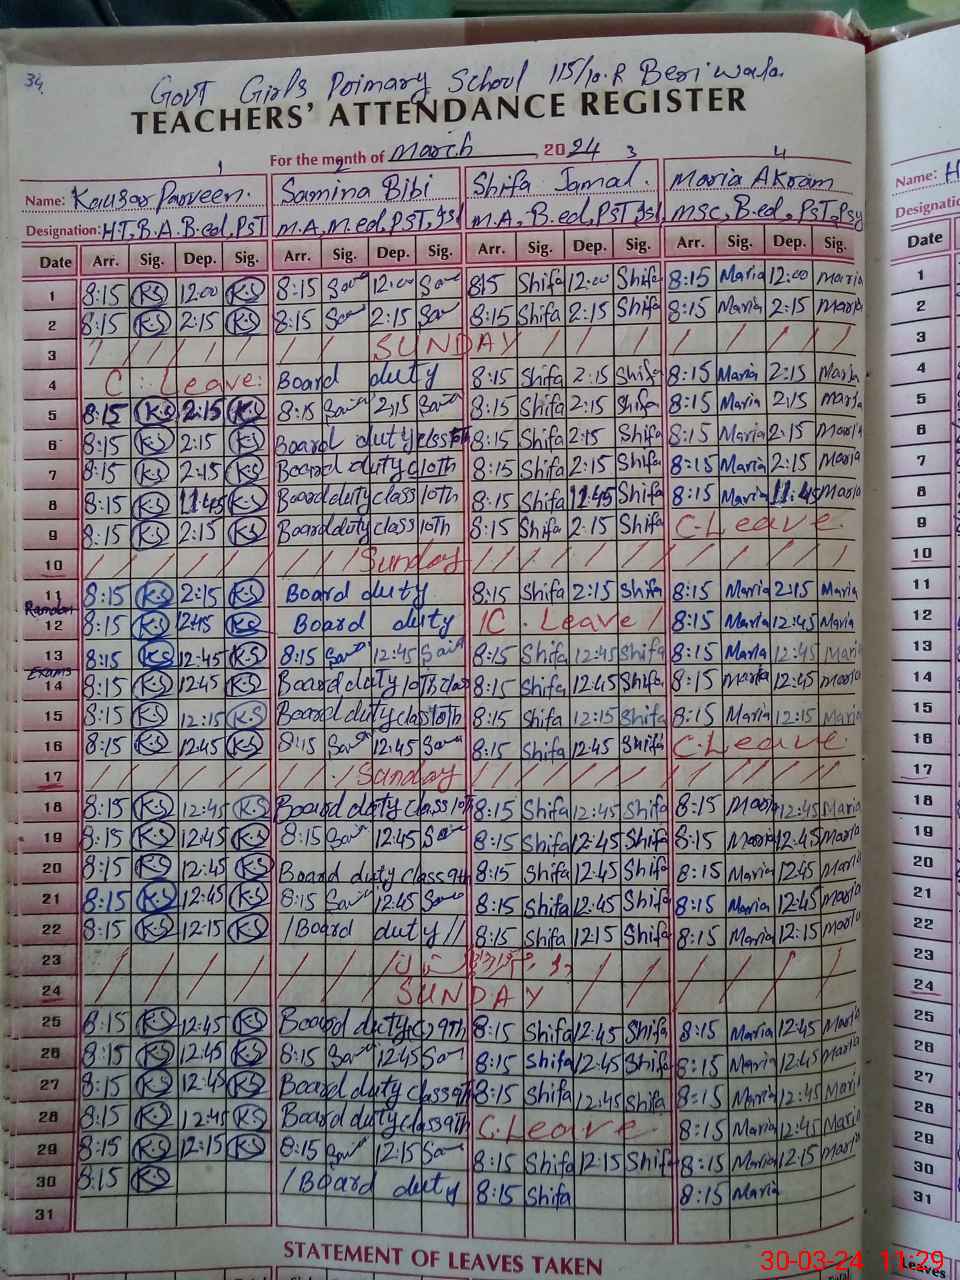 34
Govt Girls Primary School 115/10.R Beriwala
TEACHERS' ATTENDANCE REGISTER
For the month of March 2024
1 2 3 4
Name: Kausar Parveen. Samina Bibi Shifa Jamal. Maria Akram Name: H
Designation: HT, B.A. B.ed, PST M.A, M.ed, PST, M.A, B.ed, PST, MSC, B.ed, PST, Psy Designatio
Date Arr. Sig. Dep. Sig. Arr. Sig. Dep. Sig. Arr. Sig. Dep. Sig. Arr. Sig. Dep. Sig. Date
1 8:15 K.S 12:00 K.S 8:15 12:00 8:15 Shifa 12:00 Shifa 8:15 Maria 12:00 Maria 1
2 8:15 K.S 2:15 K.S 8:15 2:15 8:15 Shifa 2:15 Shifa 8:15 Maria 2:15 Maria 2
3 SUNDAY 3
4 C. Leave: Board duty 8:15 Shifa 2:15 Shifa 8:15 Maria 2:15 Maria 4
5 8:15 K.S 2:15 K.S 8:15 2:15 8:15 Shifa 2:15 Shifa 8:15 Maria 2:15 Maria 5
6 8:15 K.S 2:15 K.S Board duty class 10th 8:15 Shifa 2:15 Shifa 8:15 Maria 2:15 Maria 6
7 8:15 K.S 2:15 K.S Board duty c 10th 8:15 Shifa 2:15 Shifa 8:15 Maria 2:15 Maria 7
8 8:15 K.S 11:45 K.S Board duty class 10th 8:15 Shifa 11:45 Shifa 8:15 Maria 11:45 Maria 8
9 8:15 K.S 2:15 K.S Board duty class 10th 8:15 Shifa 2:15 Shifa C. Leave. 9
10 Sunday 10
11 8:15 K.S 2:15 K.S Board duty. 8:15 Shifa 2:15 Shifa 8:15 Maria 2:15 Maria 11
Ramdan
12 8:15 K.S 12:45 K.S Board duty C. Leave 8:15 Maria 12:45 Maria 12
13 8:15 K.S 12:45 K.S 8:15 12:45 8:15 Shifa 12:45 Shifa 8:15 Maria 12:45 Maria 13
Exams
14 8:15 K.S 12:45 K.S Board duty 10th class 8:15 Shifa 12:45 Shifa 8:15 Maria 12:45 Maria 14
15 8:15 K.S 12:15 K.S Board duty class 10th 8:15 Shifa 12:15 Shifa 8:15 Maria 12:15 Maria 15
16 8:15 K.S 12:45 K.S 8:15 12:45 8:15 Shifa 12:45 Shifa C. Leave. 16
17 Sunday 17
18 8:15 K.S 12:45 K.S Board duty class 10th 8:15 Shifa 12:45 Shifa 8:15 Maria 12:45 Maria 18
19 8:15 K.S 12:45 K.S 8:15 12:45 8:15 Shifa 12:45 Shifa 8:15 Maria 12:45 Maria 19
20 8:15 K.S 12:45 K.S Board duty class 9th 8:15 Shifa 12:45 Shifa 8:15 Maria 12:45 Maria 20
21 8:15 K.S 12:45 K.S 8:15 12:45 8:15 Shifa 12:45 Shifa 8:15 Maria 12:45 Maria 21
22 8:15 K.S 12:15 K.S Board duty 8:15 Shifa 12:15 Shifa 8:15 Maria 12:15 Maria 22
23 23
24 SUNDAY 24
25 8:15 K.S 12:45 K.S Board duty (C) 9th 8:15 Shifa 12:45 Shifa 8:15 Maria 12:45 Maria 25
26 8:15 K.S 12:45 K.S 8:15 12:45 8:15 Shifa 12:45 Shifa 8:15 Maria 12:45 Maria 26
27 8:15 K.S 12:45 K.S Board duty class 9th 8:15 Shifa 12:45 Shifa 8:15 Maria 12:45 Maria 27
28 8:15 K.S 12:45 K.S Board duty class 9th C. Leave. 8:15 Maria 12:45 Maria 28
29 8:15 K.S 12:15 K.S 8:15 12:15 8:15 Shifa 12:15 Shifa 8:15 Maria 12:15 Maria 29
30 8:15 K.S Board duty 8:15 Shifa 8:15 Maria 30
31 31
STATEMENT OF LEAVES TAKEN
Leaves
30-03-24 11:29